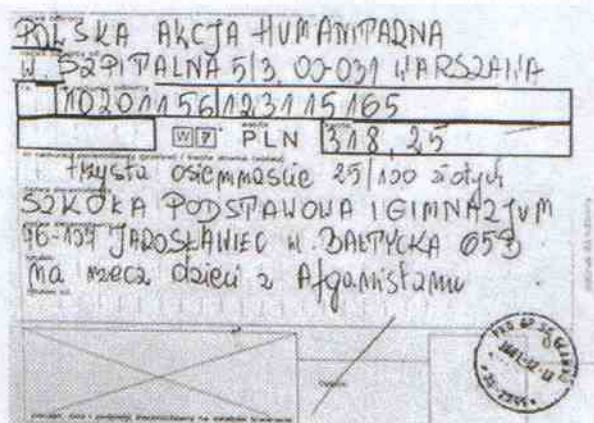 POLSKA AKCJA HUMANITARNA
UL. SZPITALNA 5/3, 00-031 WARSZAWA
10201156 123115165
W P PLN 318,25
trzysta osiemnaście 25/100 złotych
SZKOŁA PODSTAWOWA I GIMNAZJUM
JAROSŁAWIEC ul. BAŁTYCKA
na rzecz dzieci z Afganistanu